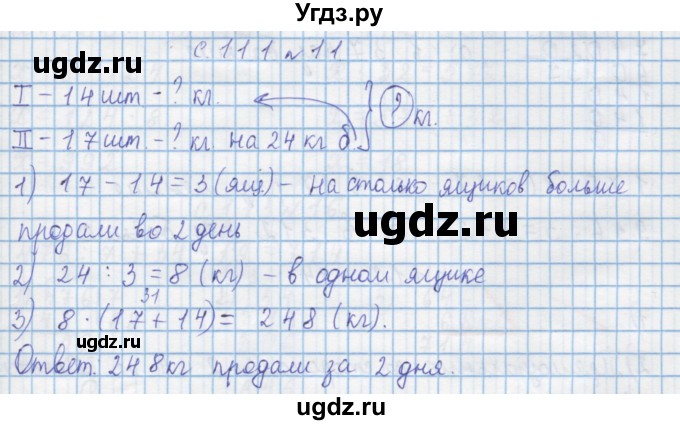 Угдз.ру
с. 111 № 11
I – 14 шт. – ? кг.
II – 17 шт. – ? кг. на 24 кг б. ? кг.
1) 17 – 14 = 3 (ящ) – на столько ящиков больше
продали во 2 день
2) 24 : 3 = 8 (кг) – в одном ящике
31
3) 8 · (17 + 14) = 248 (кг).
Ответ. 248 кг продали за 2 дня.
ugdz.ru
ugdz.ru
ugdz.ru
ugdz.ru
ugdz.ru
ugdz.ru
Угдз.ру